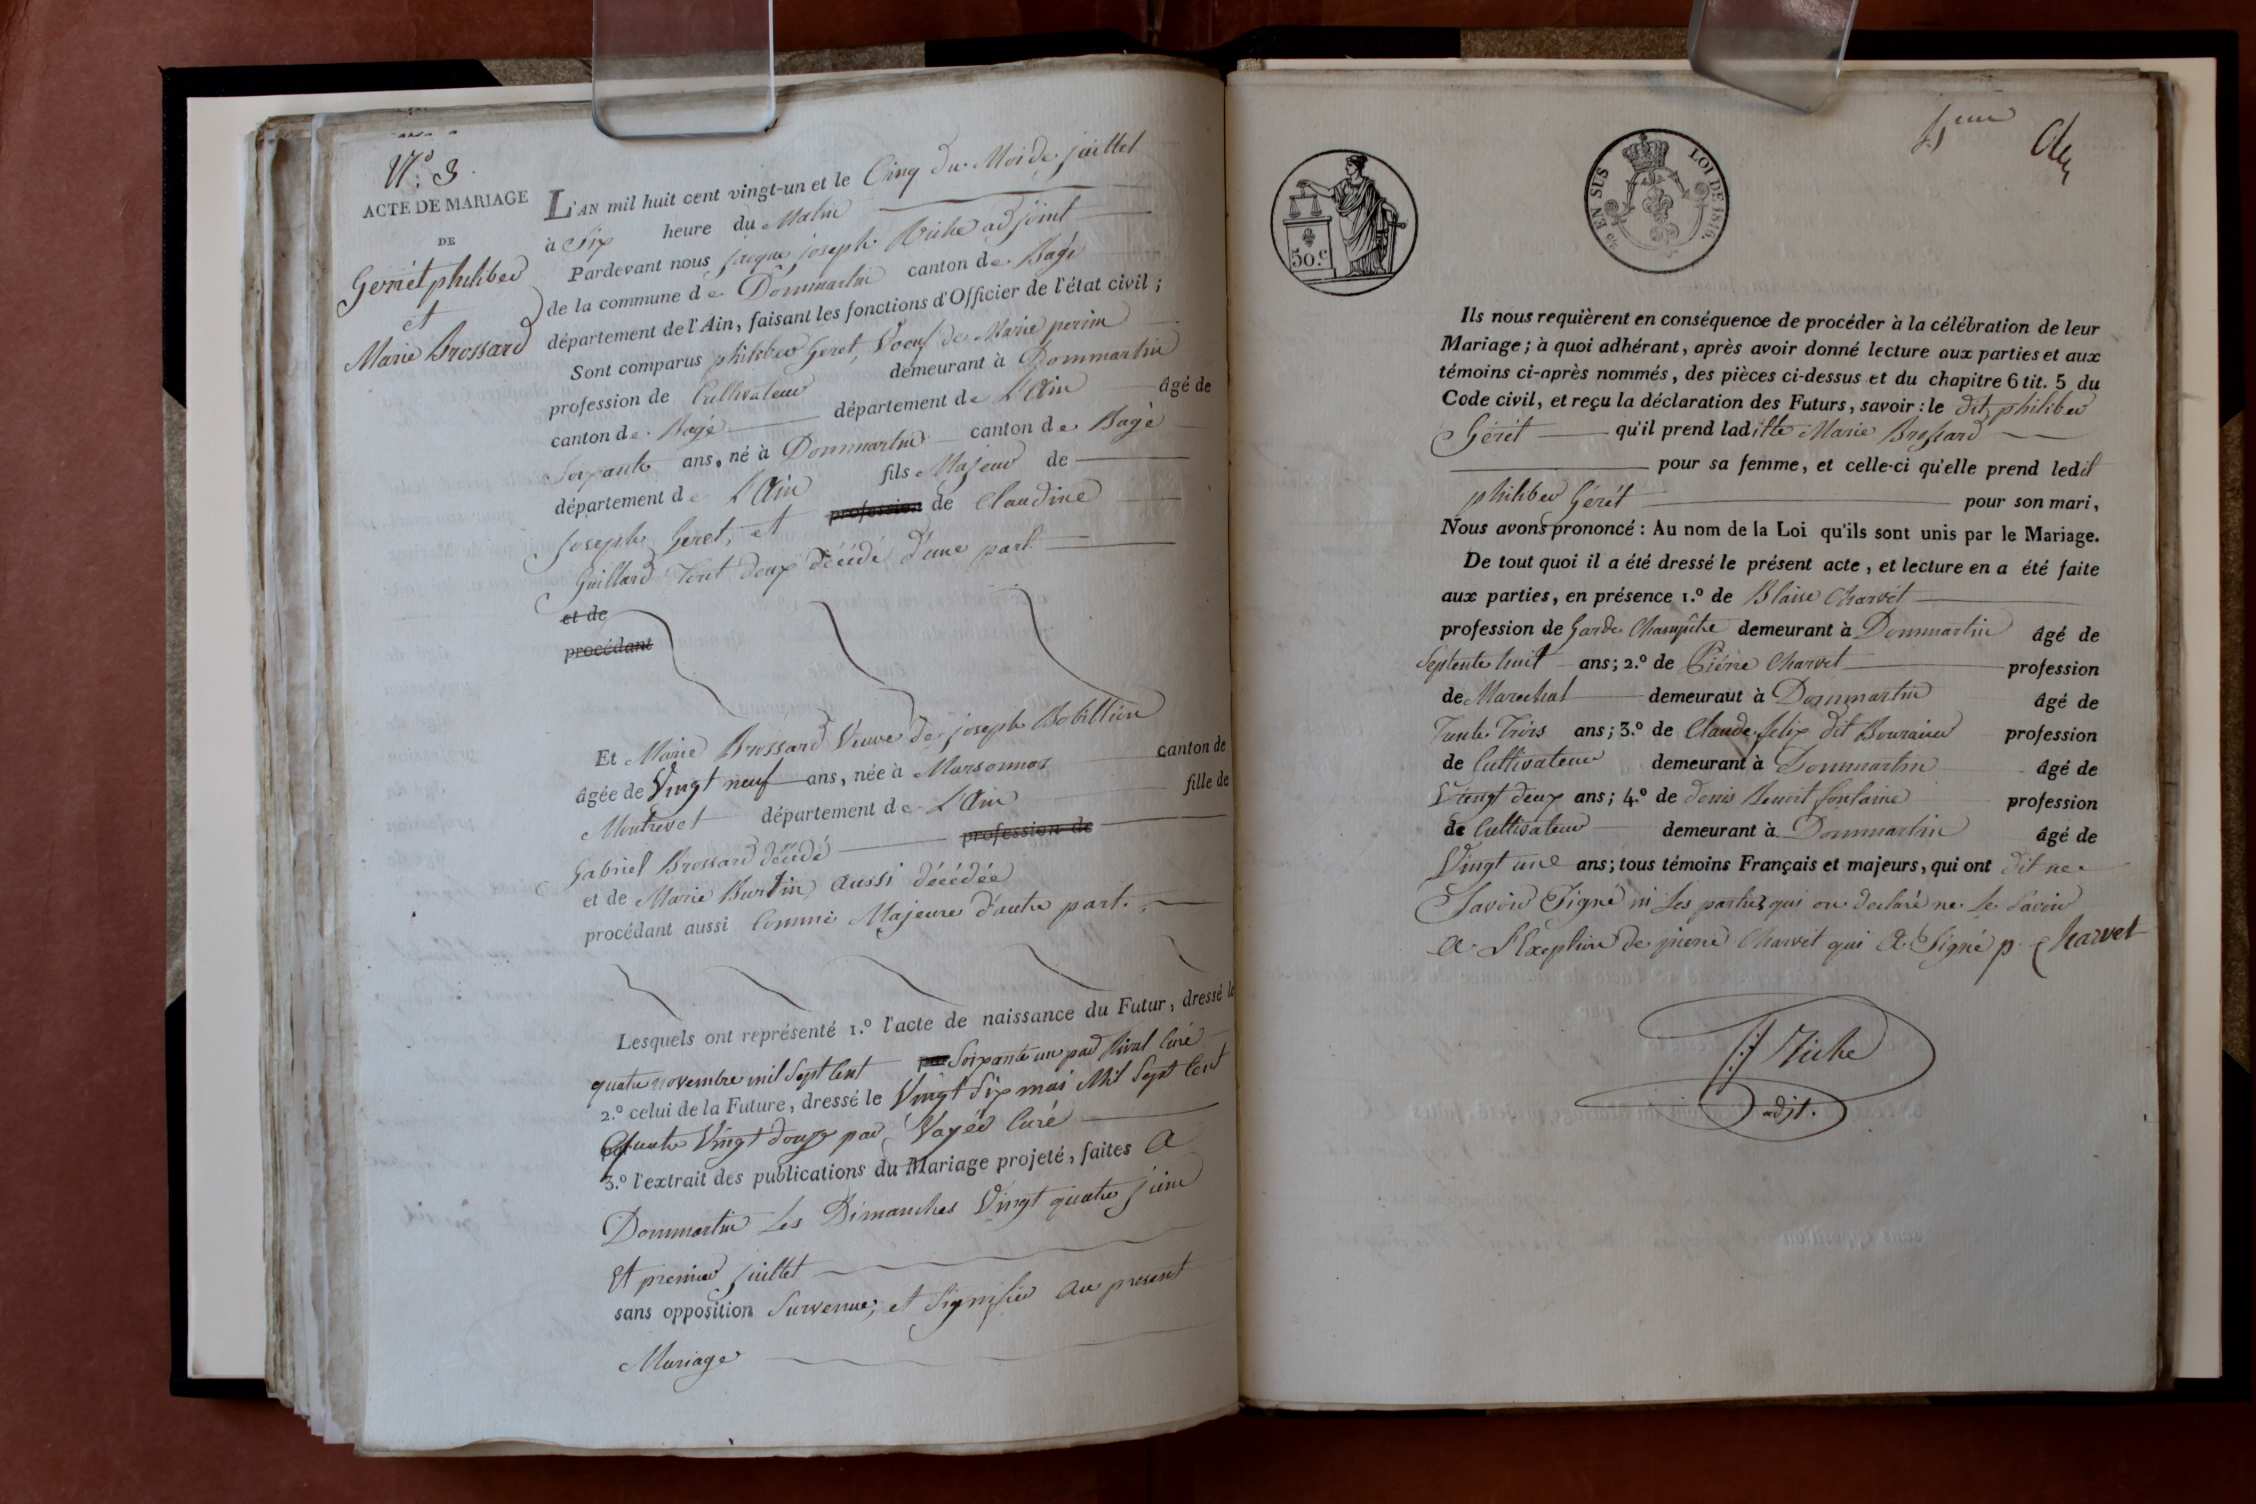 N.° 3.
ACTE DE MARIAGE
DE
Gerret philiber
et
Marie Brossard
L'AN mil huit cent vingt-un et le Cinq du Moi de juillet
à Six heure du Matin
Pardevant nous jacque joseph Riche adjoint
de la commune de Dommartin canton de Bagé
département de l'Ain, faisant les fonctions d'Officier de l'état civil;
Sont comparus philiber Geret, Voeuf de Marie perrin
profession de Cultivateur demeurant à Dommartin
canton de Bagé département de L'Ain âgé de
Soixante ans, né à Dommartin canton de Bagé
département de L'Ain fils Majeur de
Joseph Geret, et profession de Claudine
Guillard Tout deux décédé d'une part.
et de
procédant
Et Marie Brossard Veuve de joseph Bobillion
âgée de Vingt neuf ans, née à Marsonnas canton de
Montrevel département de L'Ain fille de
Gabriel Brossard décédé profession de
et de Marie Burtin aussi décédée
procédant aussi Comme Majeure d'autre part.
Lesquels ont représenté 1.° l'acte de naissance du Futur, dressé le
quatre novembre mil Sept Cent Soixante un par Rival Curé
2.° celui de la Future, dressé le Vingt Six mai Mil Sept Cent
quatre Vingt douze par Vayér Curé
3.° l'extrait des publications du Mariage projeté, faites A
Dommartin Les Dimanches Vingt quatre juin
Et premier juillet
sans opposition Survenue; et Signifiér au present
Mariage
50.c
EN SUS LOI DE 1816.
Ils nous requièrent en conséquence de procéder à la célébration de leur
Mariage; à quoi adhérant, après avoir donné lecture aux parties et aux
témoins ci-après nommés, des pièces ci-dessus et du chapitre 6 tit. 5 du
Code civil, et reçu la déclaration des Futurs, savoir: le dit philiber
Gérét qu'il prend laditte Marie Brossard
pour sa femme, et celle-ci qu'elle prend ledit
philiber Gérét pour son mari,
Nous avons prononcé: Au nom de la Loi qu'ils sont unis par le Mariage.
De tout quoi il a été dressé le présent acte, et lecture en a été faite
aux parties, en présence 1.° de Blaise Charvét
profession de Garde Champêtre demeurant à Dommartin âgé de
Septente huit ans; 2.° de Piérre Charvet profession
de Marechal demeurant à Dommartin âgé de
Trente Trois ans; 3.° de Claude felix dit Bouraier profession
de Cultivateur demeurant à Dommartin âgé de
Vingt deux ans; 4.° de denis Benoit fontaine profession
de Cultivateur demeurant à Dommartin âgé de
Vingt une ans; tous témoins Français et majeurs, qui ont dit ne
Savoir Signé ni Les parties qui on declaré ne Le Savoir
a L'Exeption de pierre Charvet qui a Signé p. Charvet
J.J Riche
adjt.